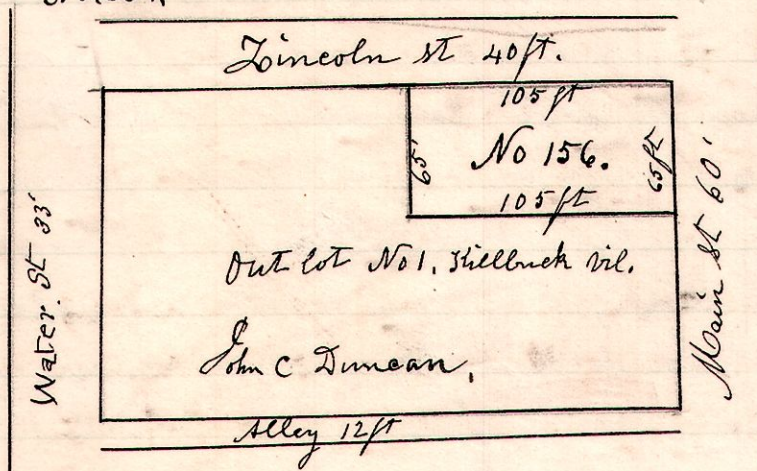 Lincoln st 40ft.
105 ft
65'
No 156.
65ft
105 ft
Water. St 33'
Main St 60'
Out lot No 1. Killbuck vil.
John C Duncan.
Alley 12ft